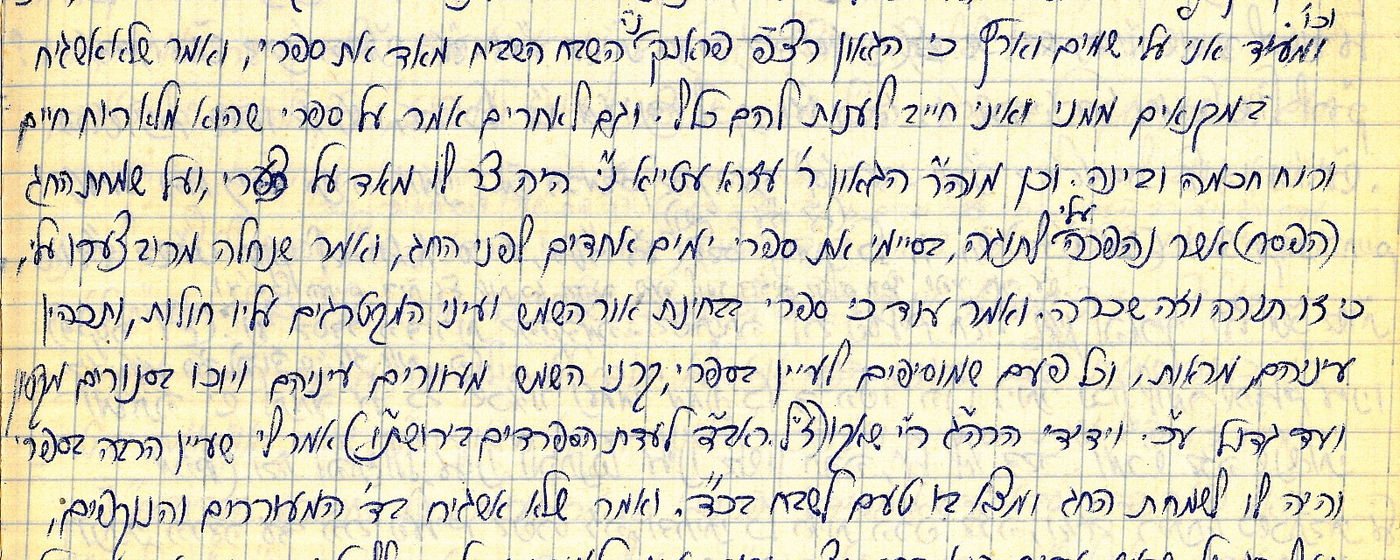 וכו'.
ומעיד אני עלי שמים וארץ כי הגאון רצ"פ פראנק נ"י השבח השביח מאד את ספרי, ואמר שלא אשגיח
במקנאים ממני ואיני חייב לענות להם כלל. וגם לאחרים אמר על ספרי שהוא מלא רוח חיים
ורוח חכמה ובינה. וכן מוהר"ר הגאון ר' עזרא עטייא נ"י היה צר לו מאד על צערי, ועל שמחת החג
(הפסח) אשר נהפכה עלי לתוגה, בסיימי את ספרי ימים אחדים לפני החג, ואמר שנחלה מרוב צערו עלי,
כי זו תורה וזה שכרה. ואמר עוד כי ספרי בבחינת אור השמש ועיני המקטרגים עליו חולות, ותכהין
עיניהם מראות, וכל פעם שמוסיפים לעיין בספרי, קרני השמש מעוורים עיניהם ויוכו בסנורים מקטון
ועד גדול עכ"ל. וידידי הרה"ג ר"י שאקו (ז"ל. ראב"ד לעדת הספרדים בירושת"ו) אמר לי שעיין הרבה בספרי
והיה לו לשמחת החג ומצא בו טעם לשבח בכ"ד. ואמר שלא אשגיח בד' המעוררים והנוקפים,